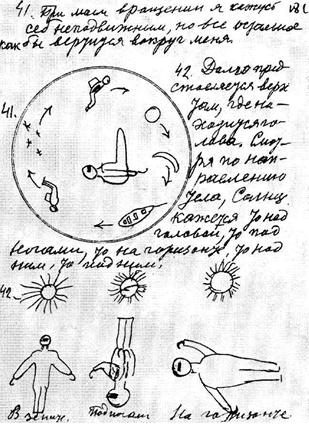 41. При моем вращении я кажусь
себе неподвижным, но все остальное
как бы вертится вокруг меня.
42. Долго пред
ставляется верх
там, где на-
41.
ходится го-
лова. Смот-
ря по нап-
равлению
тела, Солнце
кажется то над
головой, то под
ногами, то на горизонте, то над
ним, то под ним.
42.
В зените. Под ногами На горизонте.